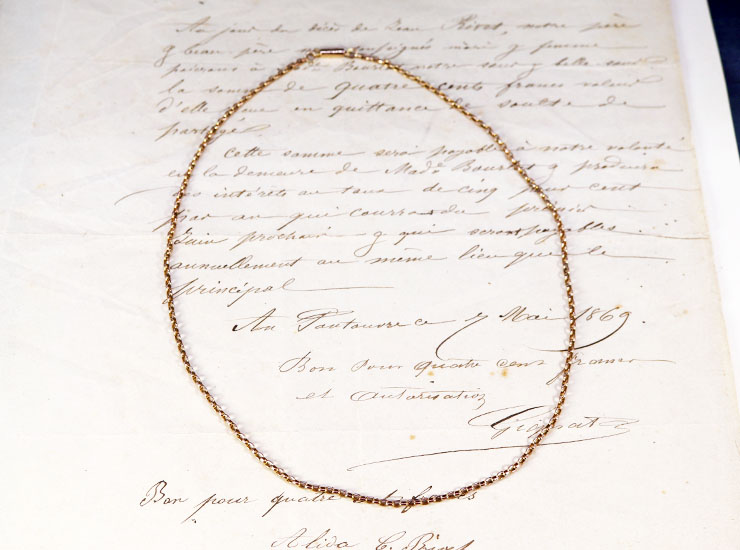 Au jour du décès de Jean Rivet, notre père
& beau père nous soussignés mari & femme
paierons à Made Bourtet notre sœur & belle sœur
la somme de quatre cents francs valeur
d'elle reçue en quittance de soulte de
partage
Cette somme sera payable à notre volonté
en la demeure de Made Bourtet & produira
des intérêts au taux de cinq pour cent
par an qui courra du premier
Juin prochain & qui seront payables
annuellement au même lieu que le
principal
Au ce 7 Mai 1869.
Bon pour quatre cents francs
et autorisation
Bon pour quatre cents francs
Alida C. Rivet